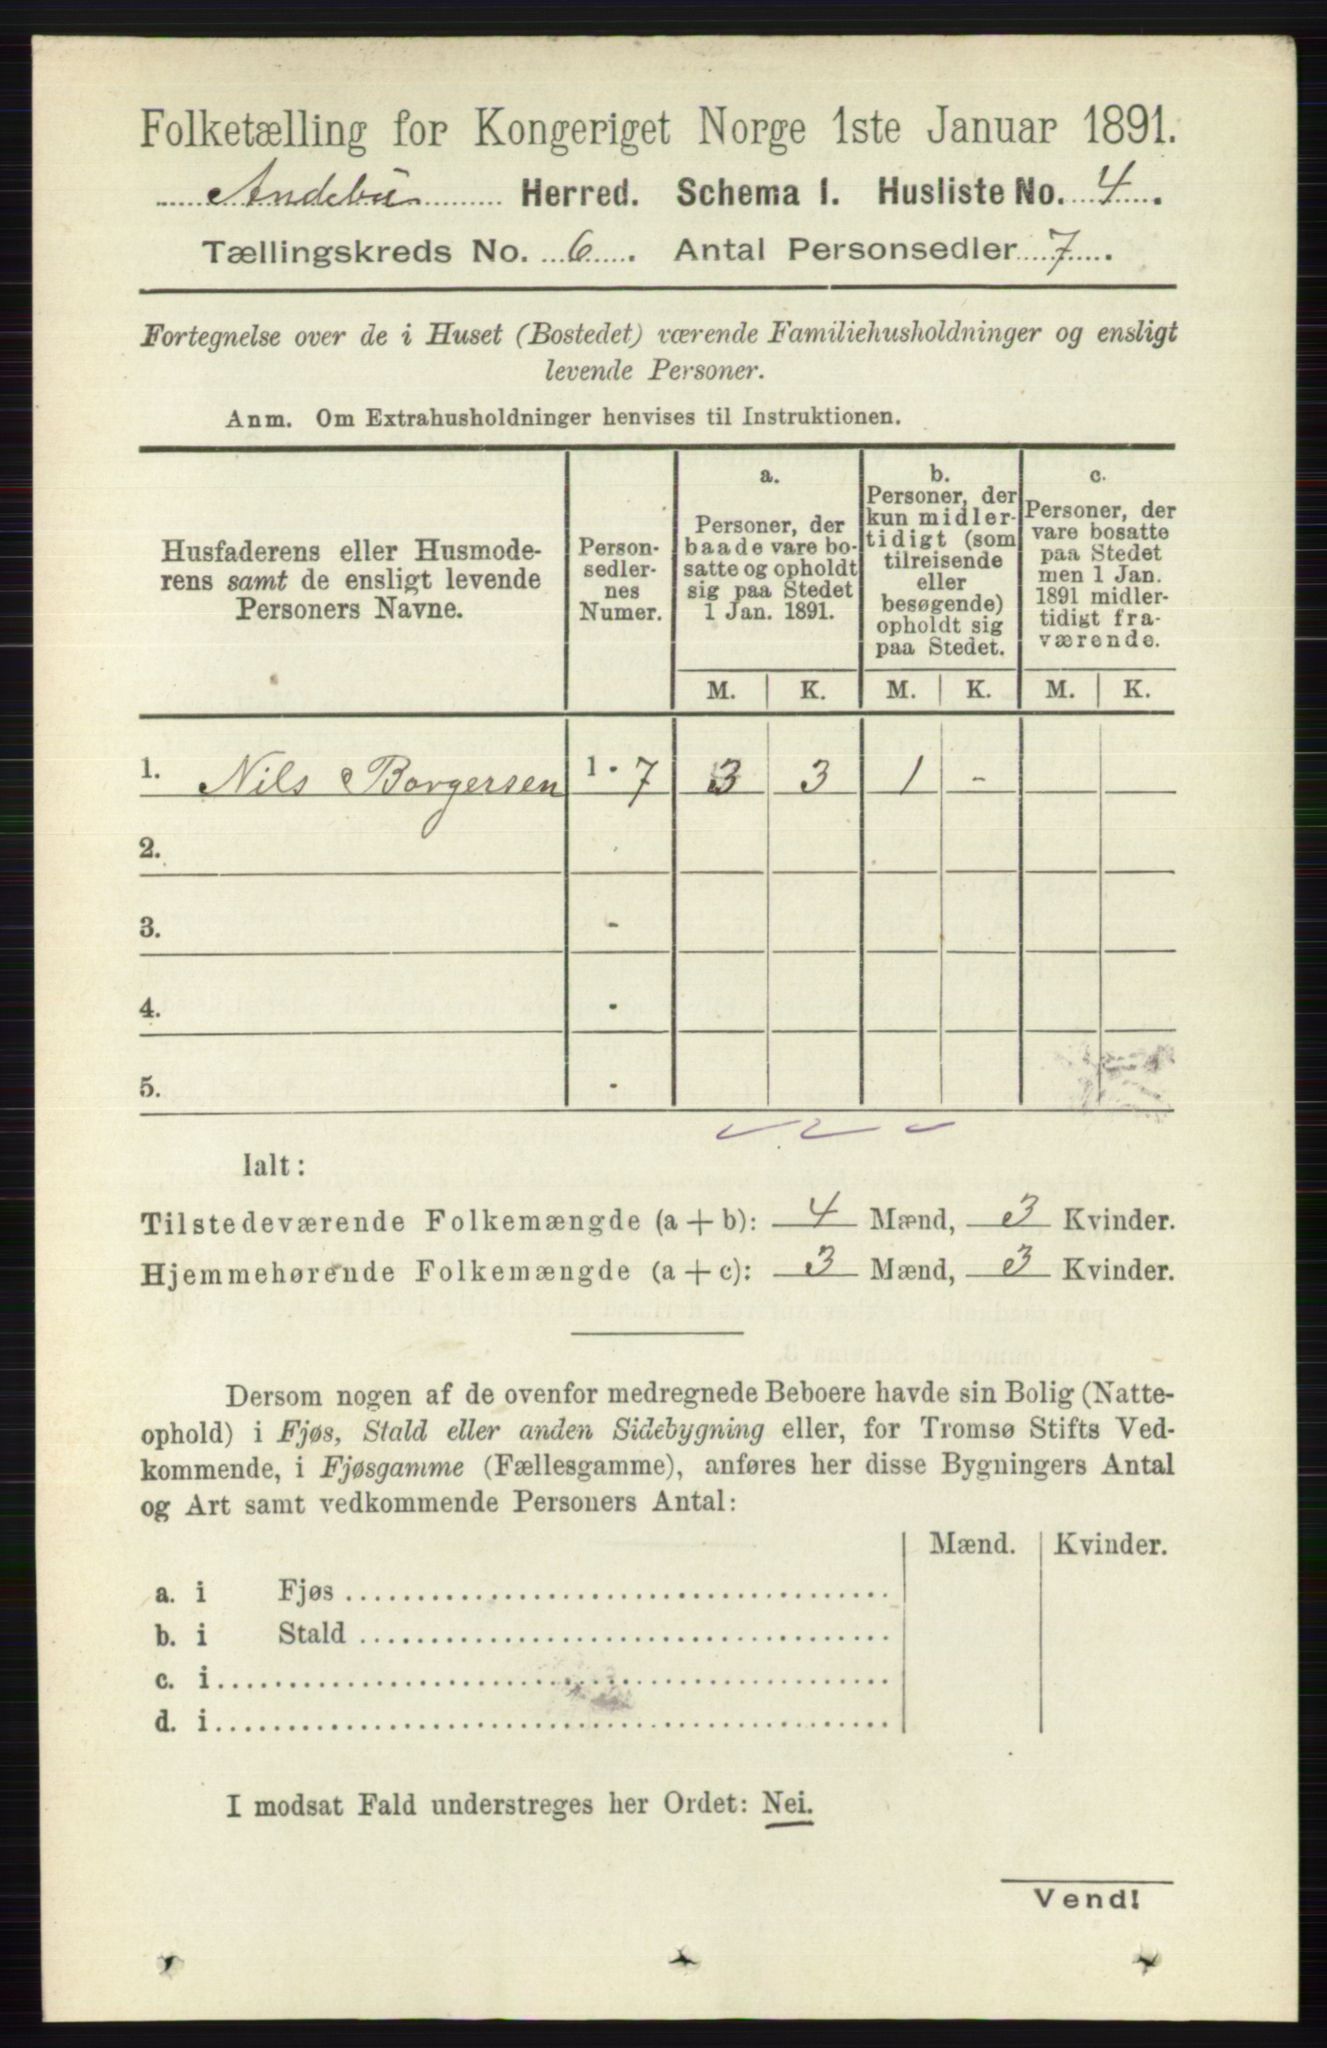 Folketælling for Kongeriget Norge 1ste Januar 1891.
Andebu Herred. Schema 1. Husliste No. 4.
Tællingskreds No. 6. Antal Personsedler 7.
Fortegnelse over de i Huset (Bostedet) værende Familiehusholdninger og ensligt
levende Personer.
Anm. Om Extrahusholdninger henvises til Instruktionen.
Husfaderens eller Husmode-
rens samt de ensligt levende
Personers Navne.
Person-
sedler-
nes
Numer.
a.
Personer, der
baade vare bo-
satte og opholdt
sig paa Stedet
1 Jan. 1891.
b.
Personer, der
kun midler-
tidigt (som
tilreisende
eller
besøgende)
opholdt sig
paa Stedet.
c.
Personer, der
vare bosatte
paa Stedet
men 1 Jan.
1891 midler-
tidigt fra-
værende.
M. K. M. K. M. K.
1. Nils Borgersen 1 - 7 3 3 1 -
2.
3. -
4. -
5. -
Ialt:
Tilstedeværende Folkemængde (a + b): 4 Mænd, 3 Kvinder.
Hjemmehørende Folkemængde (a + c): 3 Mænd, 3 Kvinder.
Dersom nogen af de ovenfor medregnede Beboere havde sin Bolig (Natte-
ophold) i Fjøs, Stald eller anden Sidebygning eller, for Tromsø Stifts Ved-
kommende, i Fjøsgamme (Fællesgamme), anføres her disse Bygningers Antal
og Art samt vedkommende Personers Antal:
Mænd. Kvinder.
a. i Fjøs
b. i Stald
c. i
d. i
I modsat Fald understreges her Ordet: Nei.
Vend!